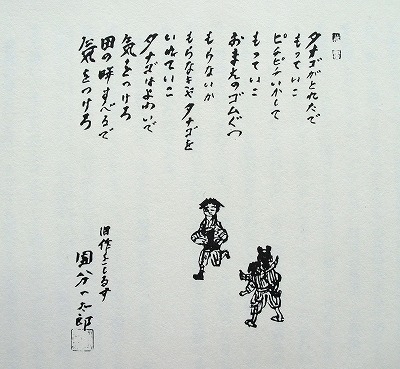 タナゴがとれたで
もっていこ
ピチピチいかして
もっていこ
おまえのゴムぐつ
もらないか
もらなきゃタナゴを
いれていこ
タナゴはよわいで
気をつけろ
田の畔すべるで
気をつけろ
旧作をしるす
国分一太郎